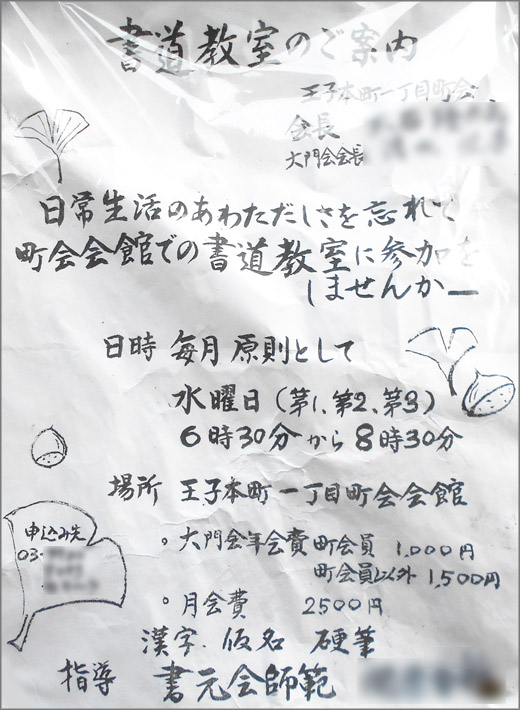 書道教室のご案内
王子本町一丁目町会
会長
大門会会長
日常生活のあわただしさを忘れて
町会会館での書道教室に参加を
しませんかー
日時 毎月 原則として
水曜日(第1、第2、第3)
6時30分から8時30分
場所 王子本町一丁目町会会館
申込み先
03-
。大門会年会費 町会員 1,000円
町会員以外 1,500円
。月会費 2500円
漢字.仮名 硬筆
指導 書元会師範